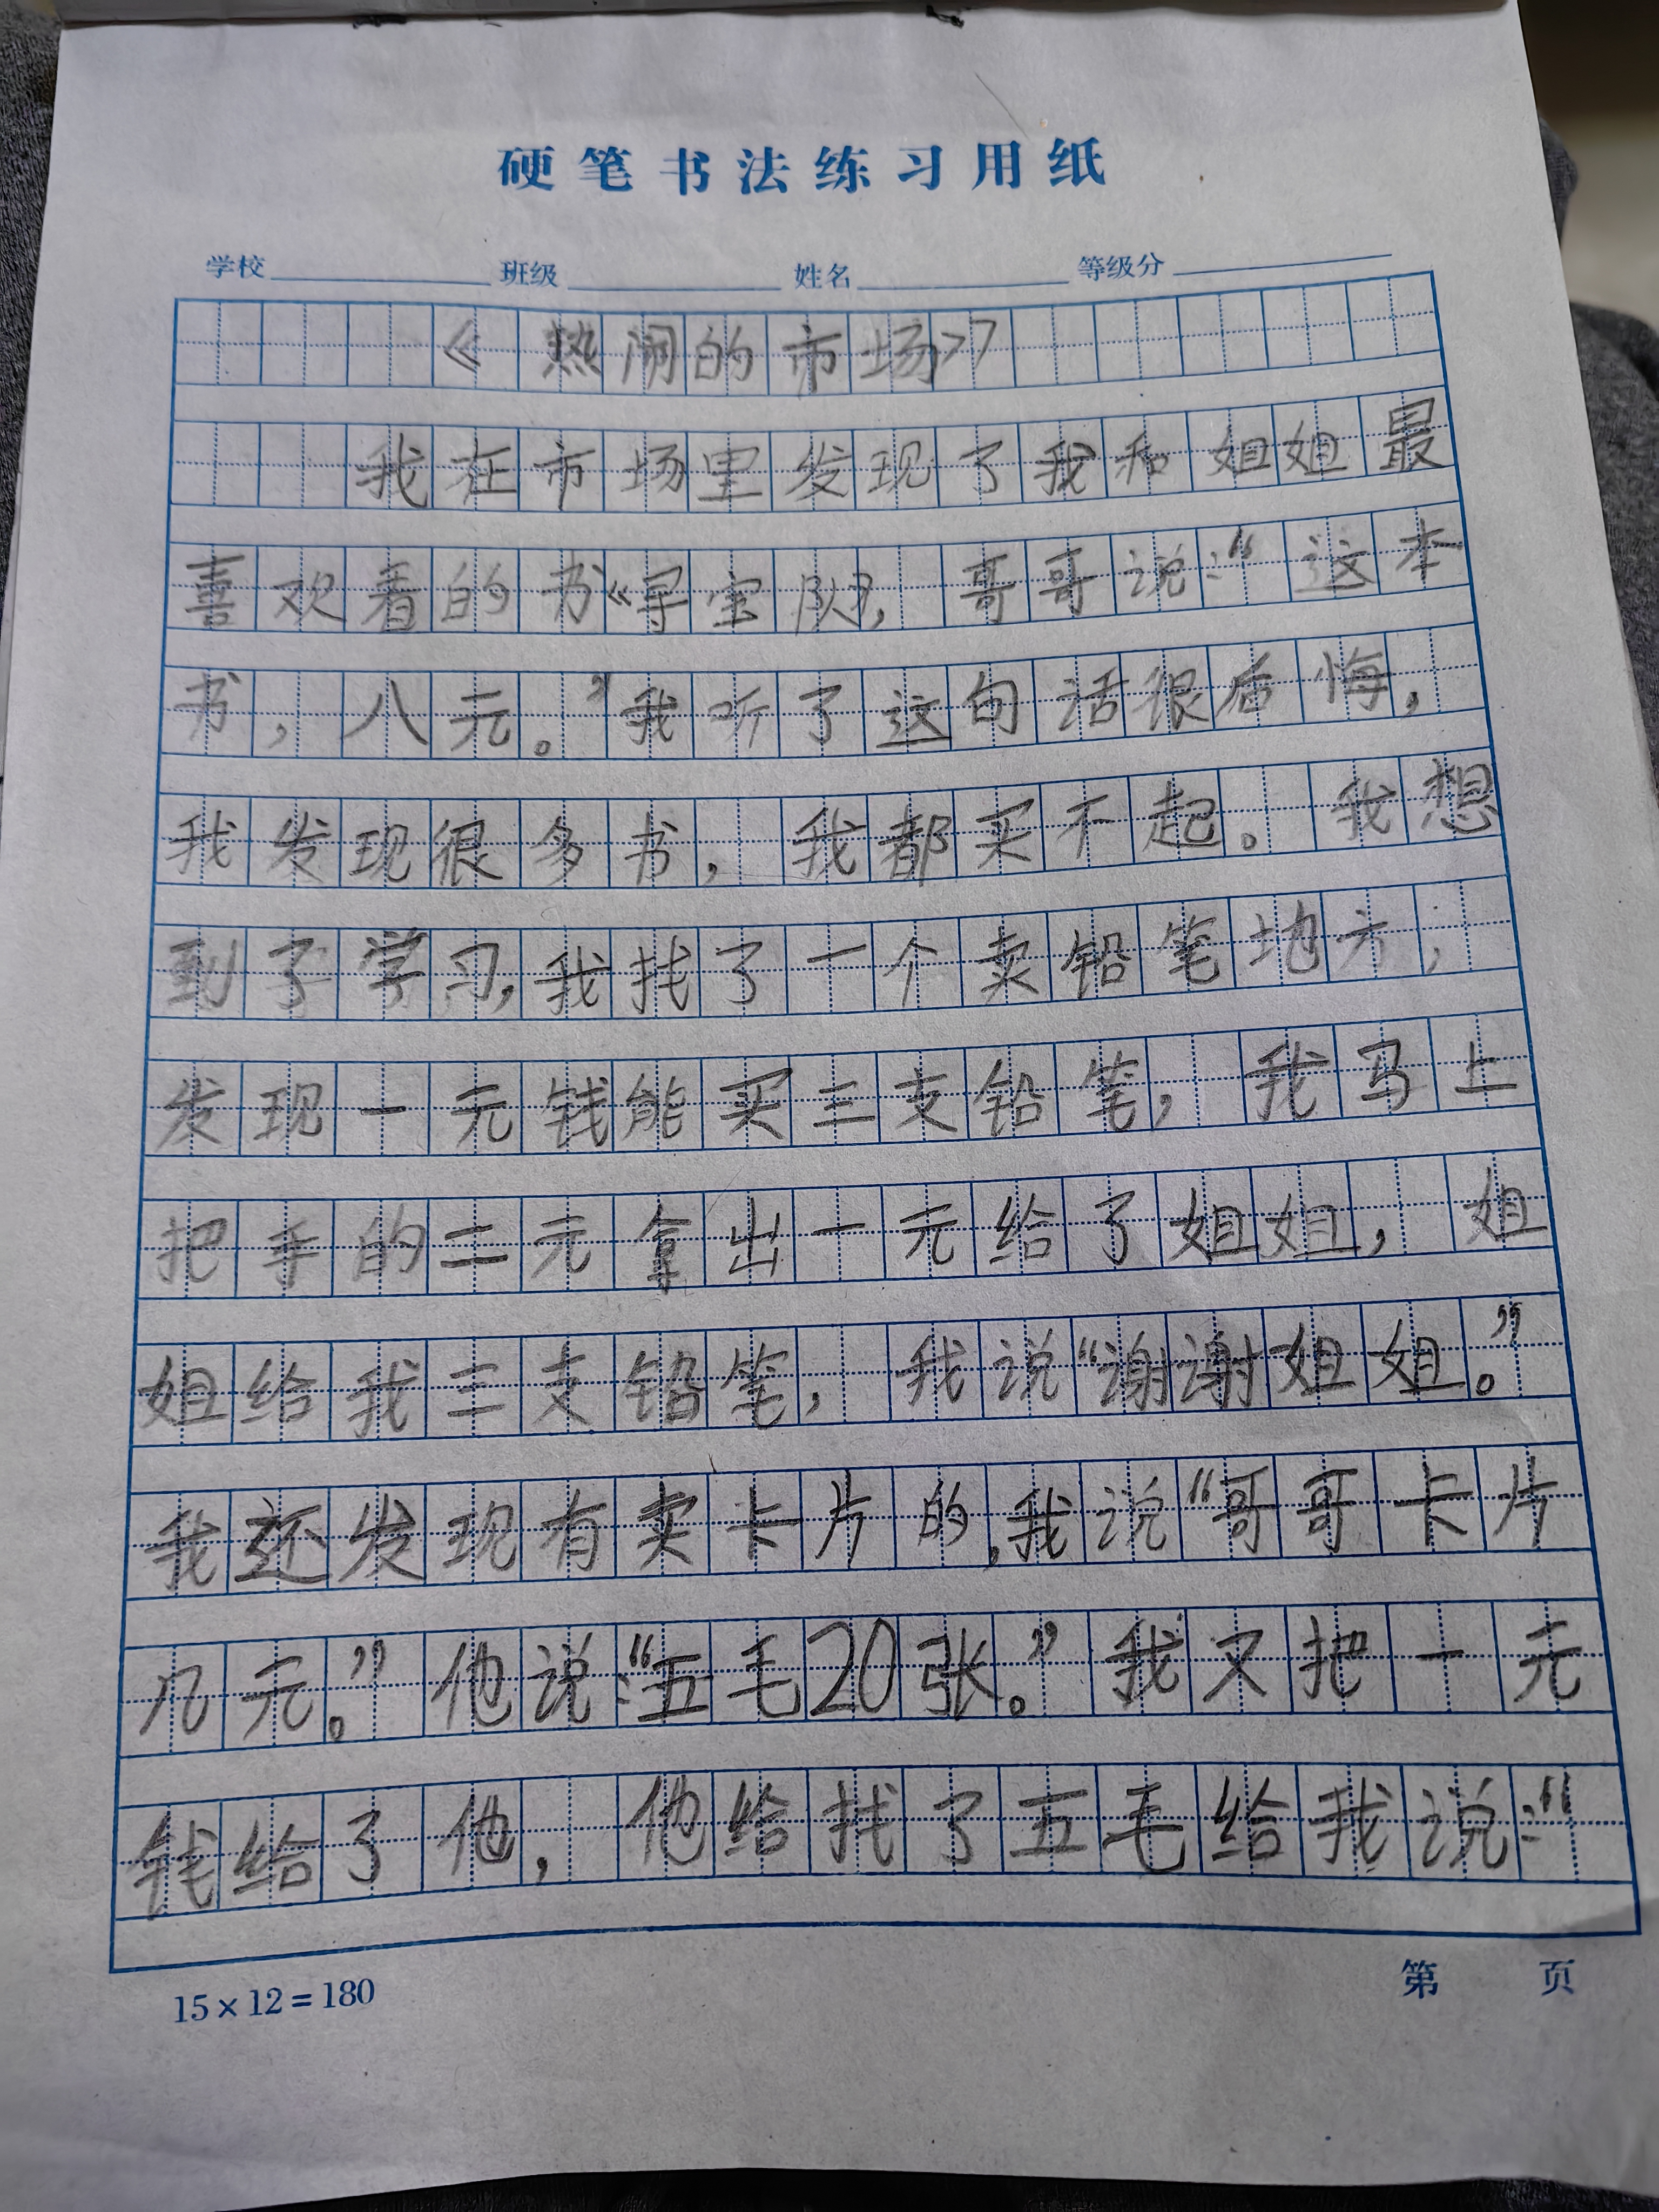 硬笔书法练习用纸
学校 班级 姓名 等级分
《热闹的市场》
我在市场里发现了我和姐姐最
喜欢看的书《寻宝队》，哥哥说：“这本
书，八元。”我听了这句话很后悔，
我发现很多书，我都买不起。我想
到了学习，我找了一个卖铅笔地方，
发现一元钱能买三支铅笔，我马上
把手的二元拿出一元给了姐姐，姐
姐给我三支铅笔，我说“谢谢姐姐。”
我还发现有卖卡片的，我说“哥哥卡片
几元。”他说：“五毛20张。”我又把一元
钱给了他，他给找了五毛给我说：“
15×12=180
第 页